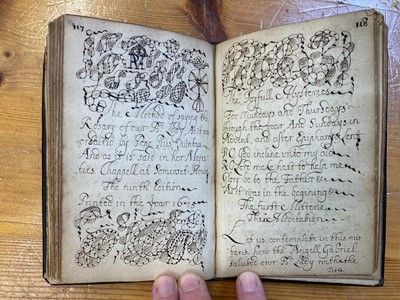 117
The Method of saying the
Rosary of our Bd. Lady As it was
ordained by Pope Pius Quintus
And as it is said in her Majes
ties Chappell at Somerset House
The ninth Edition
Printed in the year
118
The Joyfull Mysteries
For Mundays and Thursdays
through the year And Sundays in
Advent, and after Epiphany till Lent
O God incline unto my aid
R O Lord make hast to help me
Glory be to the Father &c
As it was in the begining &c
The first Misterie
The Meditation
Let us contemplate in this mis
terie how the Angell Gabriel
saluted our Bd. Lady with the
Title